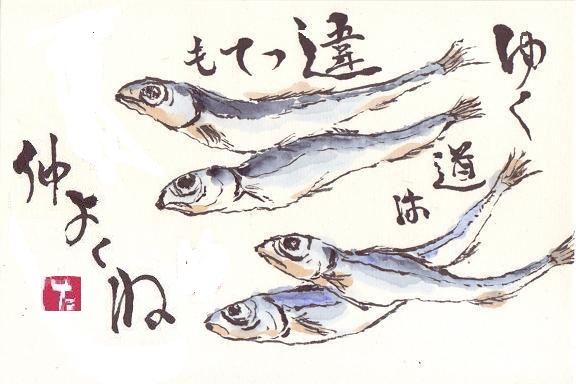 ゆく
道は
違ってても
仲よくね